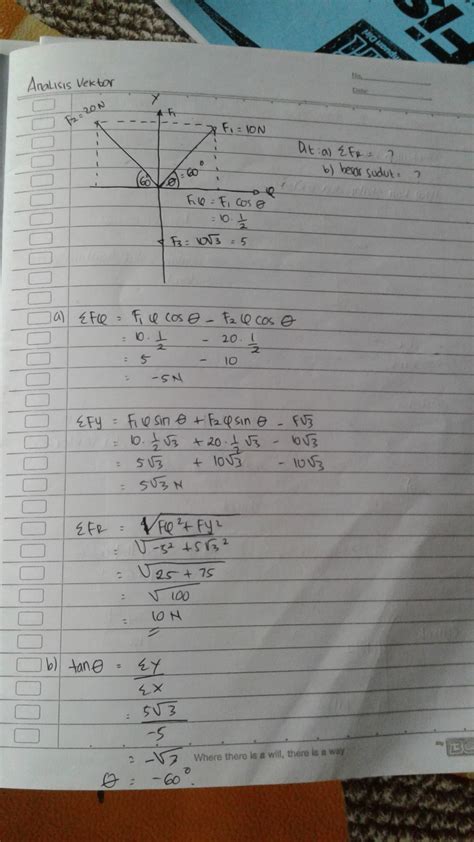 Analisis Vektor
No.
Date
Y
F2 = 20N
F1
F1 = 10N
60°
θ = 60°
φ
F1φ = F1 cos θ
= 10 . 1/2
F3 = 10√3 = 5
Dit : a) ΣFR = ?
b) besar sudut = ?
a) ΣFφ = F1 φ cos θ - F2 φ cos θ
= 10 . 1/2 - 20 . 1/2
= 5 - 10
= -5 N
ΣFy = F1 φ sin θ + F2 φ sin θ - F√3
= 10 . 1/2 √3 + 20 . 1/2 √3 - 10√3
= 5√3 + 10√3 - 10√3
= 5√3 N
ΣFR = √Fφ² + Fy²
= √-5² + 5√3²
= √25 + 75
= √100
= 10 N
b) tan θ = ΣY / ΣX
= 5√3 / -5
= -√3
θ = -60°.
Where there is a will, there is a way